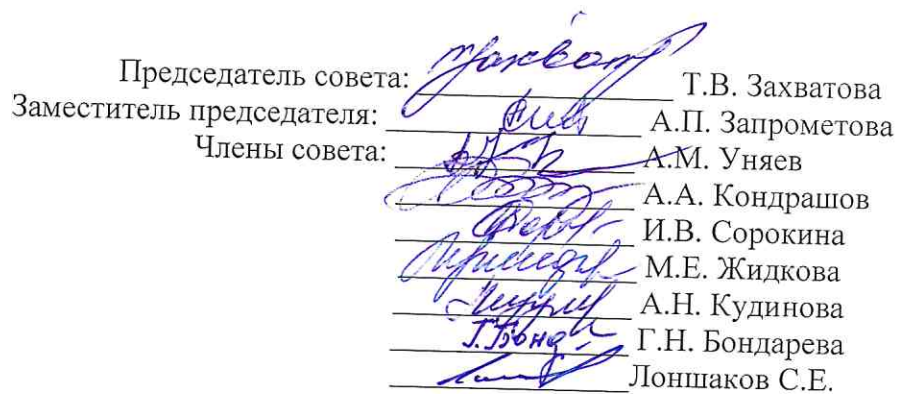 Председатель совета: Т.В. Захватова
Заместитель председателя: А.П. Запрометова
Члены совета: А.М. Уняев
А.А. Кондрашов
И.В. Сорокина
М.Е. Жидкова
А.Н. Кудинова
Г.Бонд Г.Н. Бондарева
Лоншаков С.Е.